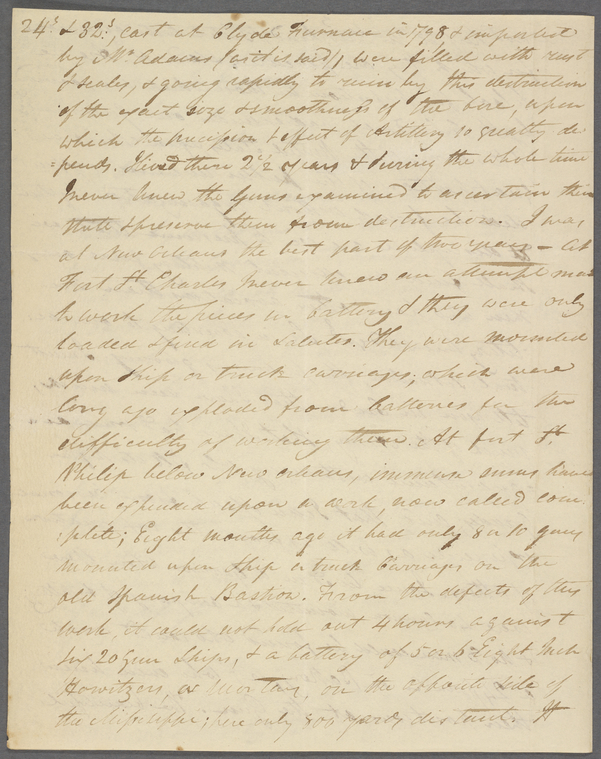 24s & 32s, cast at Clyde Furnace in 1798 & imported
by Mr Adams (as it is said), were filled with rust
& scales, & going rapidly to ruin by this destruction
of the exact size & smoothness of the bore, upon
which the precision & effect of Artillery so greatly de
=pends. I lived there 2 1/2 years & during the whole time
I never knew the Guns examined to ascertain their
state & preserve them from destruction. I was
at New Orleans the best part of two years – At
Fort St. Charles I never knew an attempt made
to work the pieces in battery & they were only
loaded & fired in salutes. They were mounted
upon Ship or truck carriages, which were
long ago exploded from batteries for the
difficulty of working them. At fort St.
Philip below New Orleans, immense sums have
been expended upon a work, now called com-
:plete; Eight months ago it had only 8 or 10 guns
mounted upon Ship or truck Carriages on the
old Spanish Bastion. From the defects of this
work, it could not hold out 4 hours against
six 20 Gun Ships, & a battery of 5 or 6 Eight Inch
Howitzers, or mortars, on the opposite side of
the Mississippi; here only 800 yards distant. It